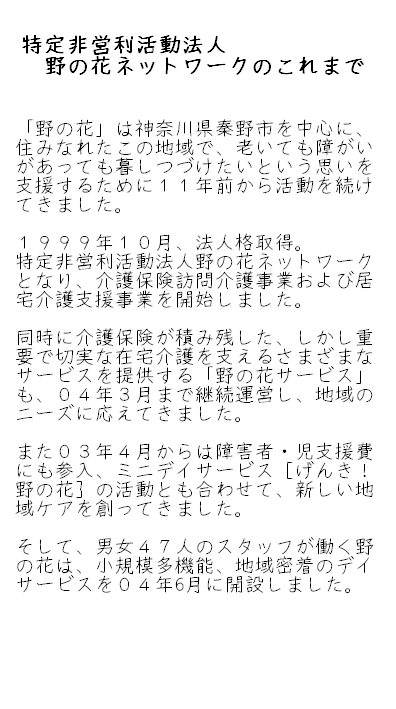 特定非営利活動法人
野の花ネットワークのこれまで
「野の花」は神奈川県秦野市を中心に、
住みなれたこの地域で、老いても障がい
があっても暮しつづけたいという思いを
支援するために１１年前から活動を続け
てきました。
１９９９年１０月、法人格取得。
特定非営利活動法人野の花ネットワーク
となり、介護保険訪問介護事業および居
宅介護支援事業を開始しました。
同時に介護保険が積み残した、しかし重
要で切実な在宅介護を支えるさまざまな
サービスを提供する「野の花サービス」
も、０４年３月まで継続運営し、地域の
ニーズに応えてきました。
また０３年４月からは障害者・児支援費
にも参入、ミニデイサービス［げんき！
野の花］の活動とも合わせて、新しい地
域ケアを創ってきました。
そして、男女４７人のスタッフが働く野
の花は、小規模多機能、地域密着のデイ
サービスを０４年6月に開設しました。